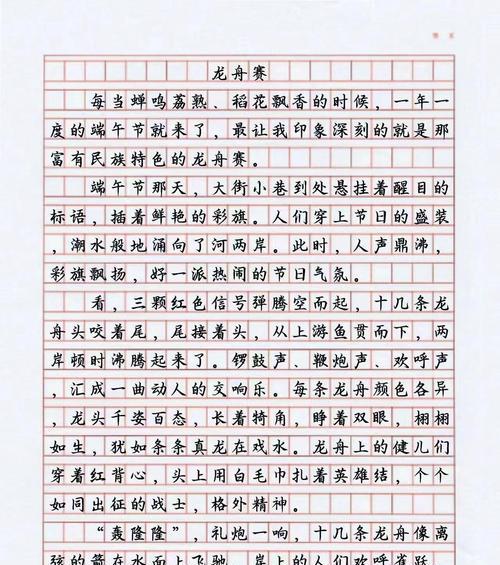 龙舟赛
每当蝉鸣荔熟、稻花飘香的时候，一年一
度的端午节就来了，最让我印象深刻的就是那
富有民族特色的龙舟赛。
端午节那天，大街小巷到处悬挂着醒目的
标语，插着鲜艳的彩旗。人们穿上节日的盛装
，潮水般地涌向了河两岸。此时，人声鼎沸，
彩旗飘扬，好一派热闹的节日气氛。
看，三颗红色信号弹腾空而起，十几条龙
舟头咬着尾，尾接着头，从上游鱼贯而下，两
岸顿时沸腾起来了。锣鼓声、鞭炮声、欢呼声
，汇成一曲动人的交响乐。每条龙舟颜色各异
，龙头千姿百态，长着犄角，睁着双眼，栩栩
如生，犹如条条真龙在戏水。龙舟上的健儿们
穿着红背心，头上用白毛巾扎着英雄结，个个
如同出征的战士，格外精神。
“轰隆隆”，礼炮一响，十几条龙舟像离
弦的箭在水面上飞驰。岸上的人们欢呼雀跃